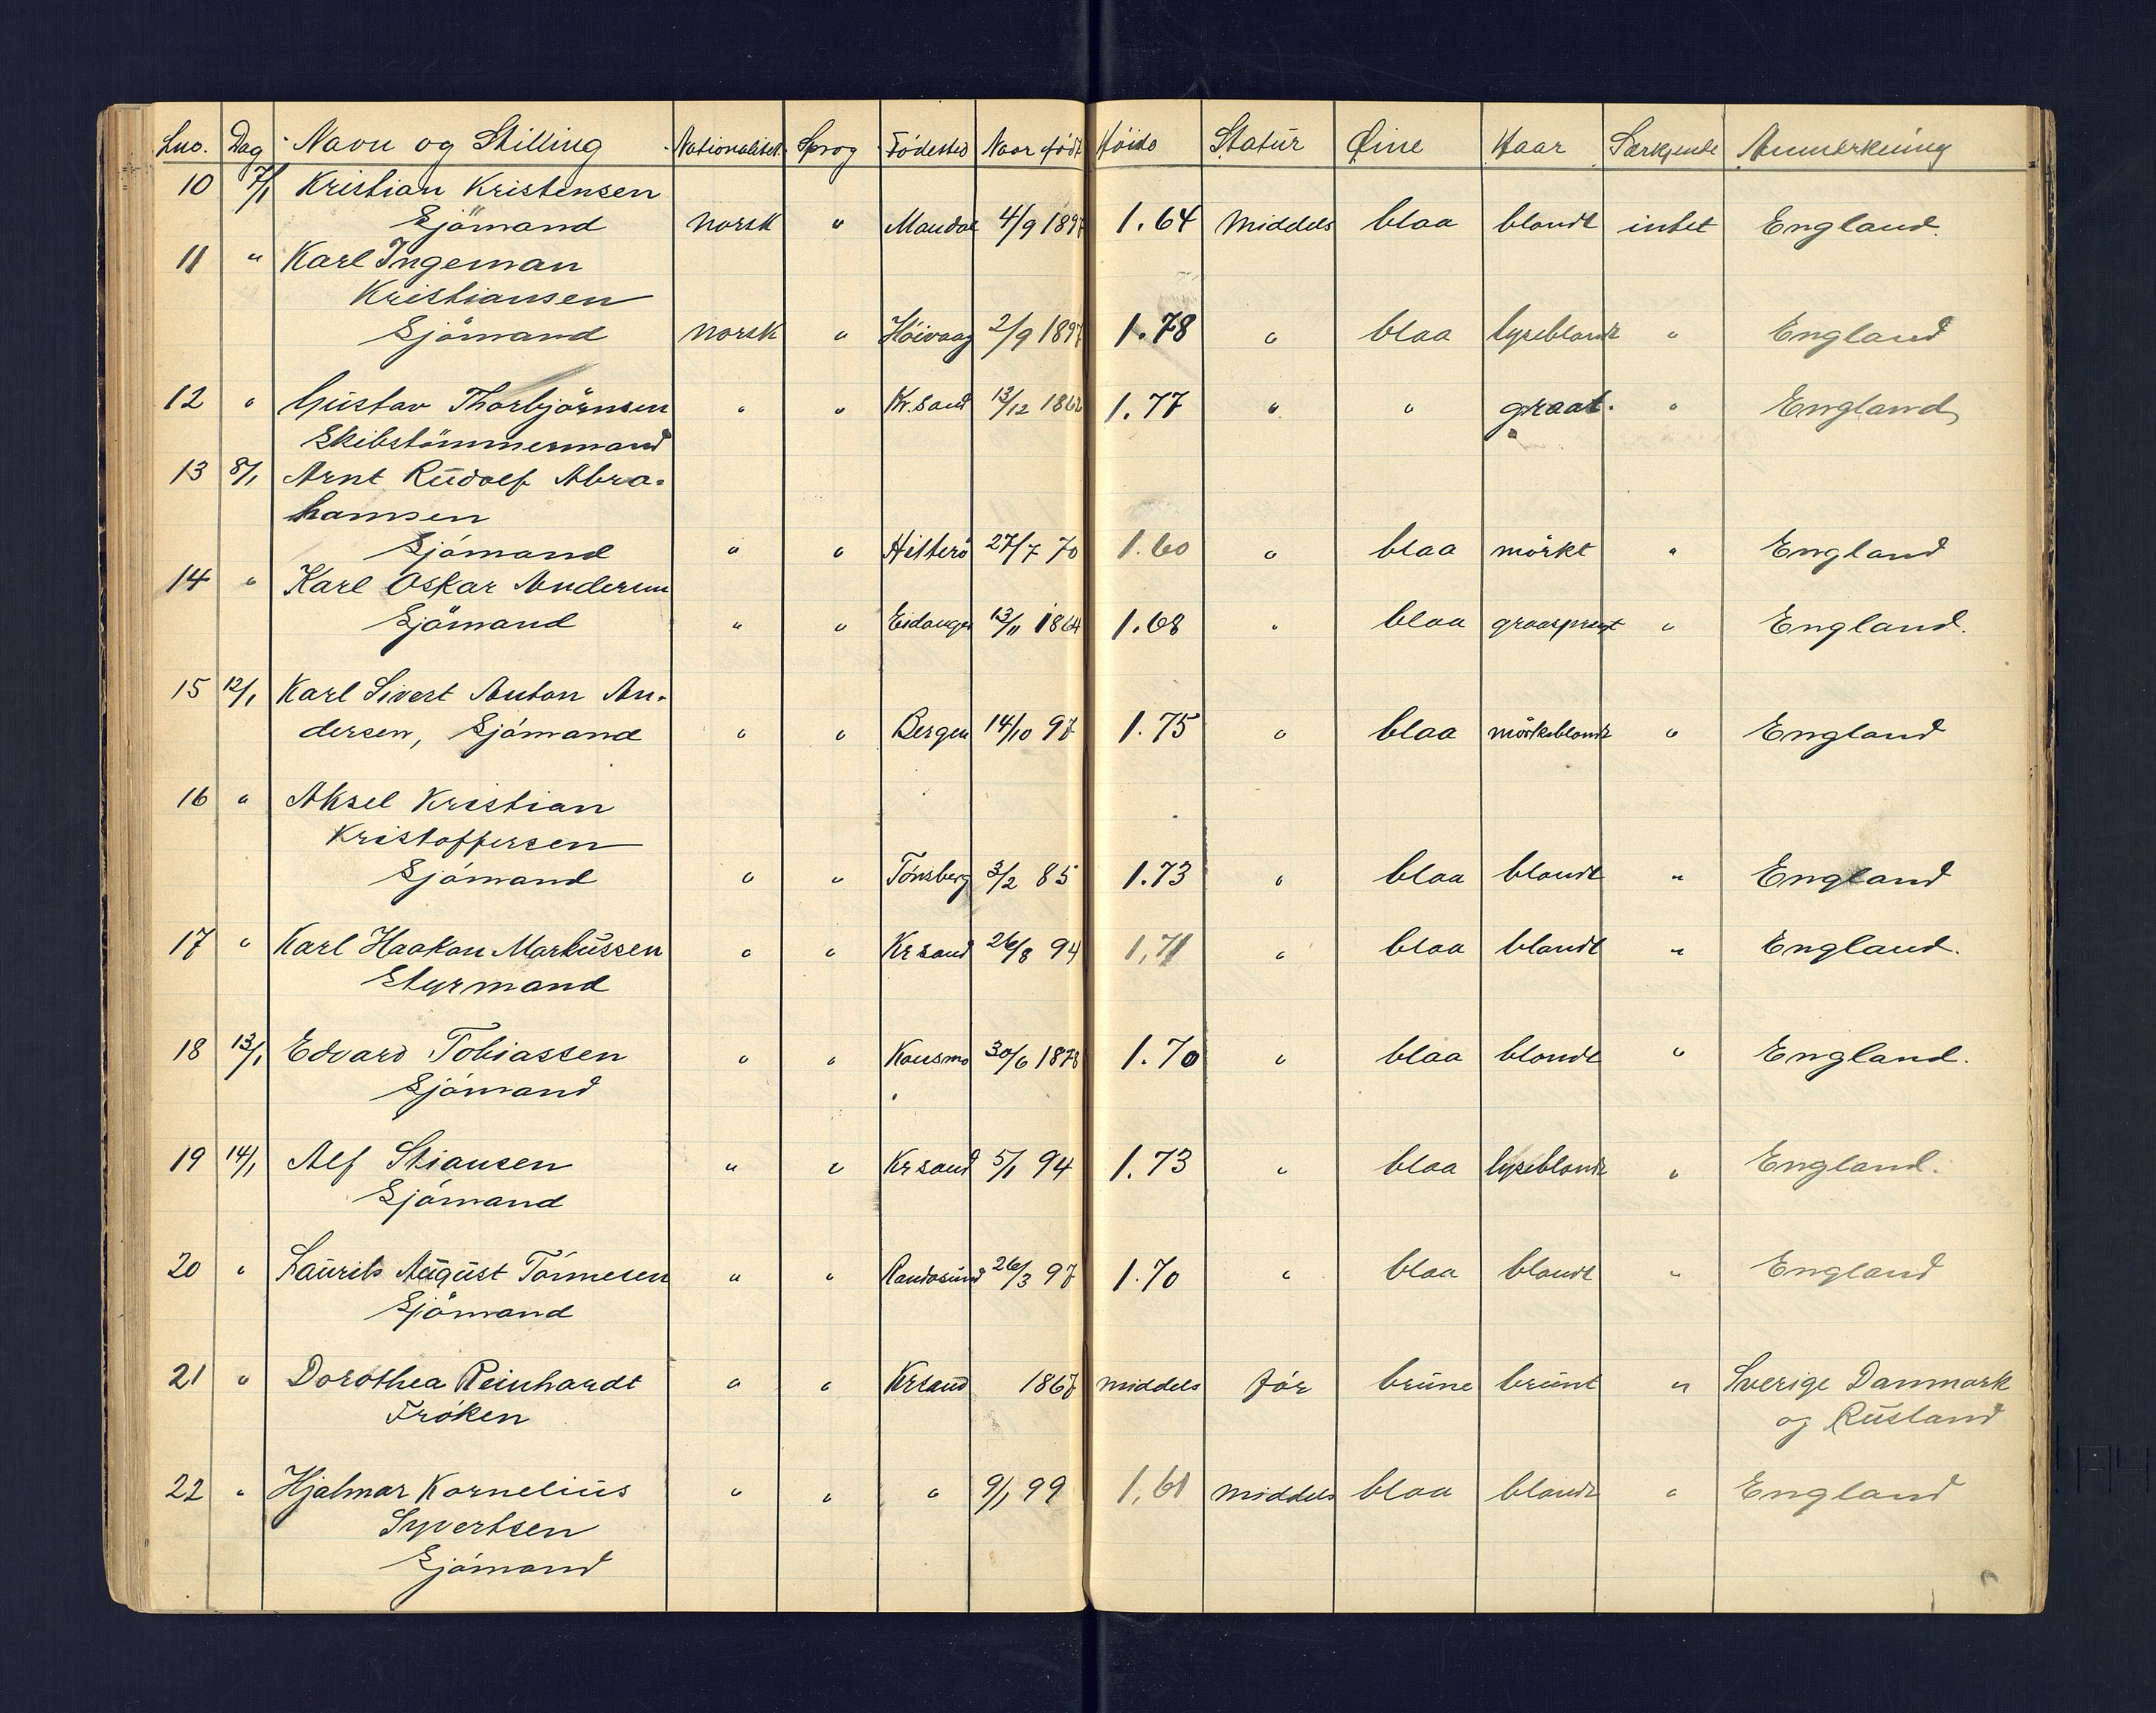 Lno. Dag Navn og Stilling Nationalitet Sprog Födested Naar född Höide Statur Øine Haar Særkjende Anmerkning
10 7/1 Kristian Kristensen
Sjömand norsk " Mandal 4/9 1897 1.64 Middels blaa blondt intet England.
11 " Karl Ingeman
Kristiansen
Sjömand norsk " Höivaag 2/9 1897 1.78 " blaa lyseblondt " England
12 " Gustav Thorbjörnsen " " Kr.sand 13/12 1862 1.77 " " graat. " England
Skibstömmermand
13 8/1 Arnt Rudolf Abra-
hamsen
Sjömand " " Hitterö 27/7 70 1.60 " blaa mörkt " England
14 " Karl Oskar Andersen
Sjömand " " Eidanger 13/11 1864 1.68 " blaa graasprengt " England.
15 12/1 Karl Sivert Anton An-
dersen, Sjömand " " Bergen 14/10 97 1.75 " blaa mörkeblondt " England
16 " Aksel Kristian
Kristoffersen
Sjömand " " Tönsberg 3/2 85 1.73 " blaa blondt " England
17 " Karl Haakon Markussen " " Krsand 26/8 94 1,71 " blaa blondt " England.
Styrmand
18 13/1 Edvard Tobiassen " " 30/6 1878 1.70 " blaa blondt " England.
Sjömand
19 14/1 Alf Stiansen " " Krsand 5/1 94 1.73 " blaa lyseblondt " England.
Sjömand
20 " Laurits August Tönnesen " " Randosund 26/3 97 1.70 " blaa blondt " England
Sjömand
21 " Dorothea Reinhardt " " Krsand 1867 middels för brune brunt " Sverige Danmark
Fröken og Rusland
22 " Hjalmar Kornelius " " " 9/1 99 1,61 Middels blaa blondt " England
Syvertsen
Sjömand